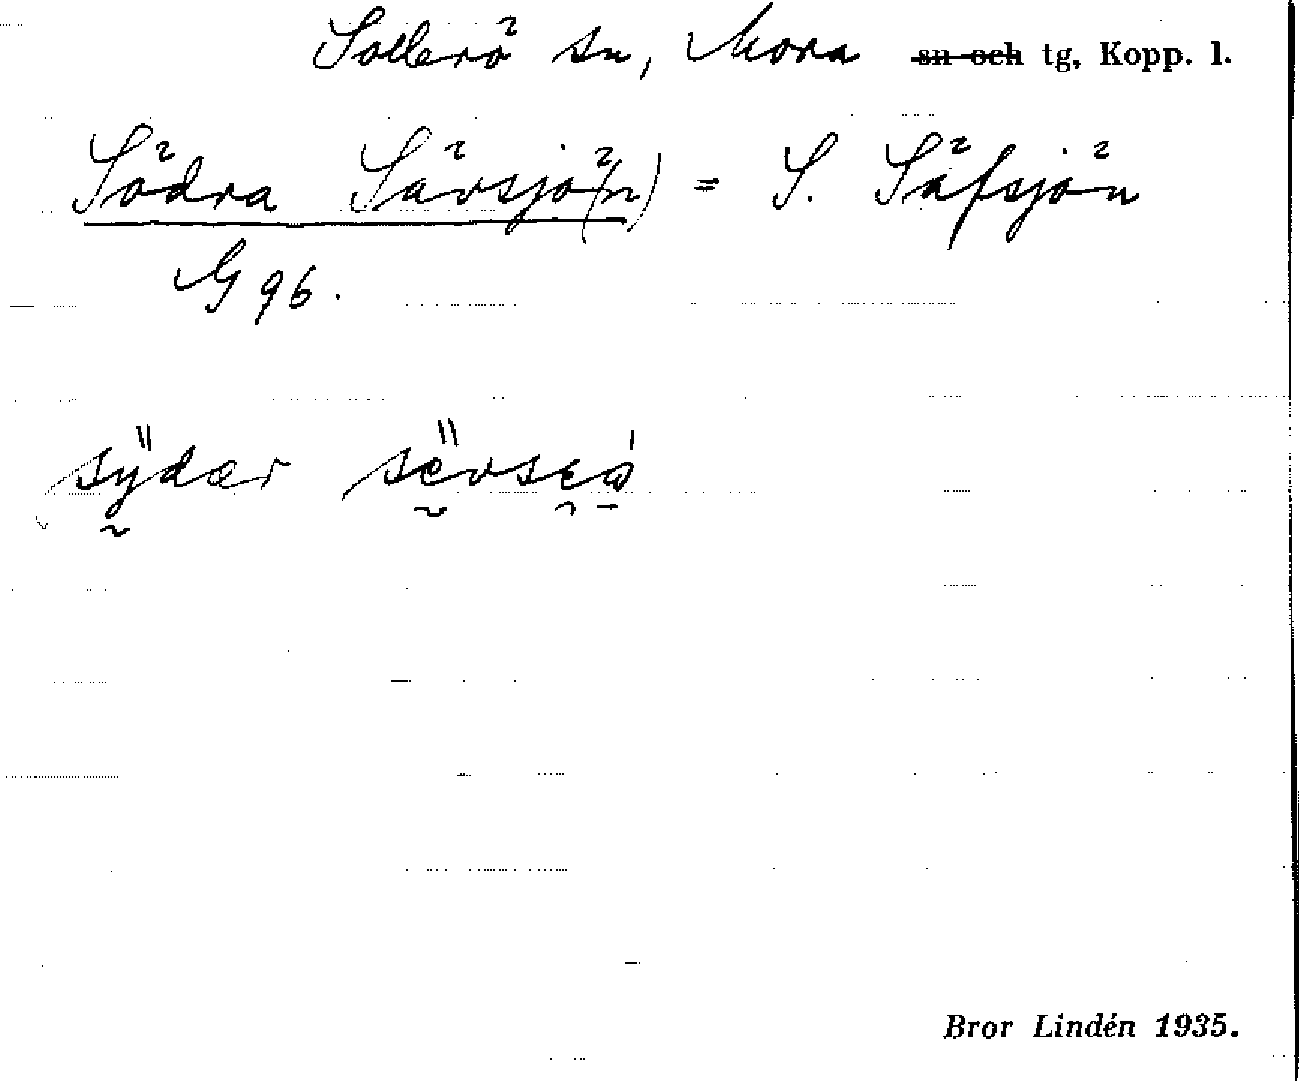 Sollerö sn, Mora ~~sn och~~ tg, Kopp. l.
Södra Sävsjö(n) = S. Säfsjön
G 96.
sÿdær
Bror Lindén 1935.